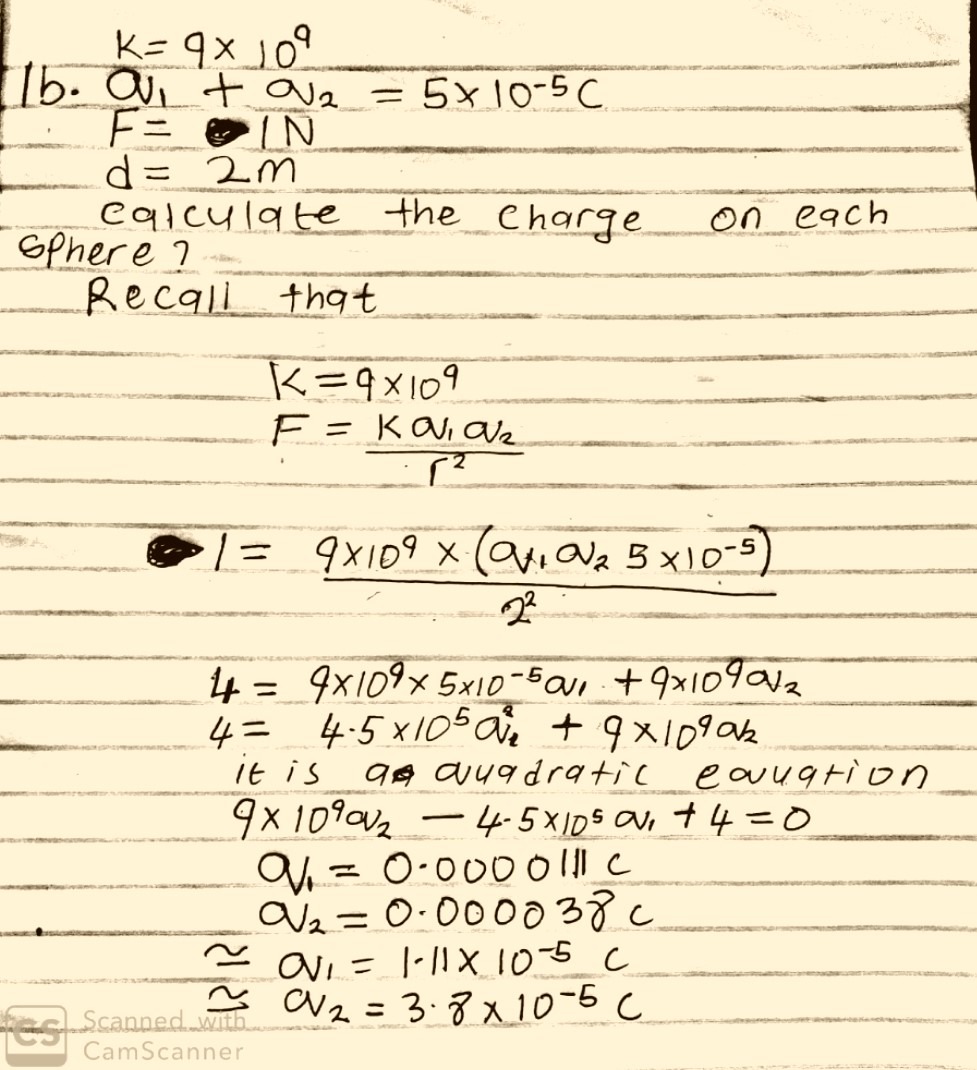 K = 9 × 10⁹
1b. q₁ + q₂ = 5 × 10⁻⁵ C
F = 1N
d = 2m
calculate the charge on each
sphere ?
Recall that
K = 9×10⁹
F = K q₁ q₂
r²
1 = 9×10⁹ × (q₁ q₂ 5 ×10⁻⁵)
2²
4 = 9×10⁹ × 5×10⁻⁵ q₁ + 9×10⁹ q₂
4 = 4.5 ×10⁵ q₁² + 9 × 10⁹ q₂
it is a quadratic equation
9 × 10⁹ q₂ — 4.5 × 10⁵ q₁ + 4 = 0
q₁ = 0.0000111 C
q₂ = 0.000038 C
≅ q₁ = 1.11 × 10⁻⁵ C
≅ q₂ = 3.8 × 10⁻⁵ C
CS Scanned with
CamScanner